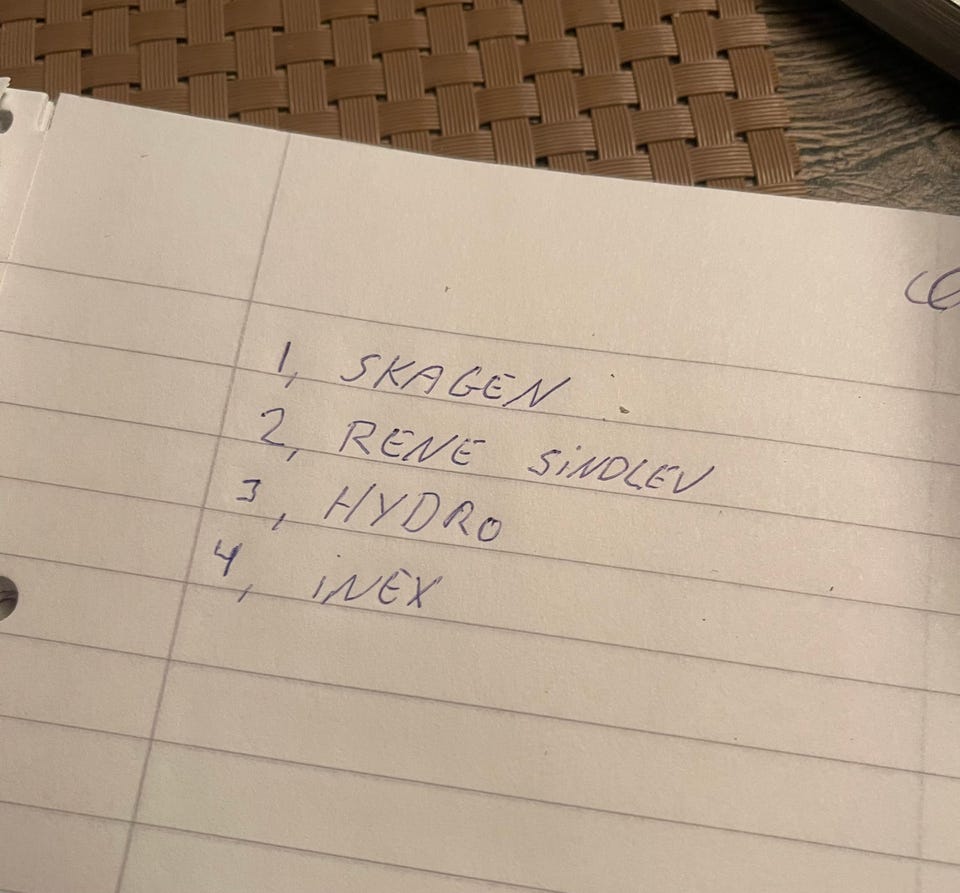 1, SKAGEN
2, RENE SiNDLEV
3, HYDRO
4, iNEX